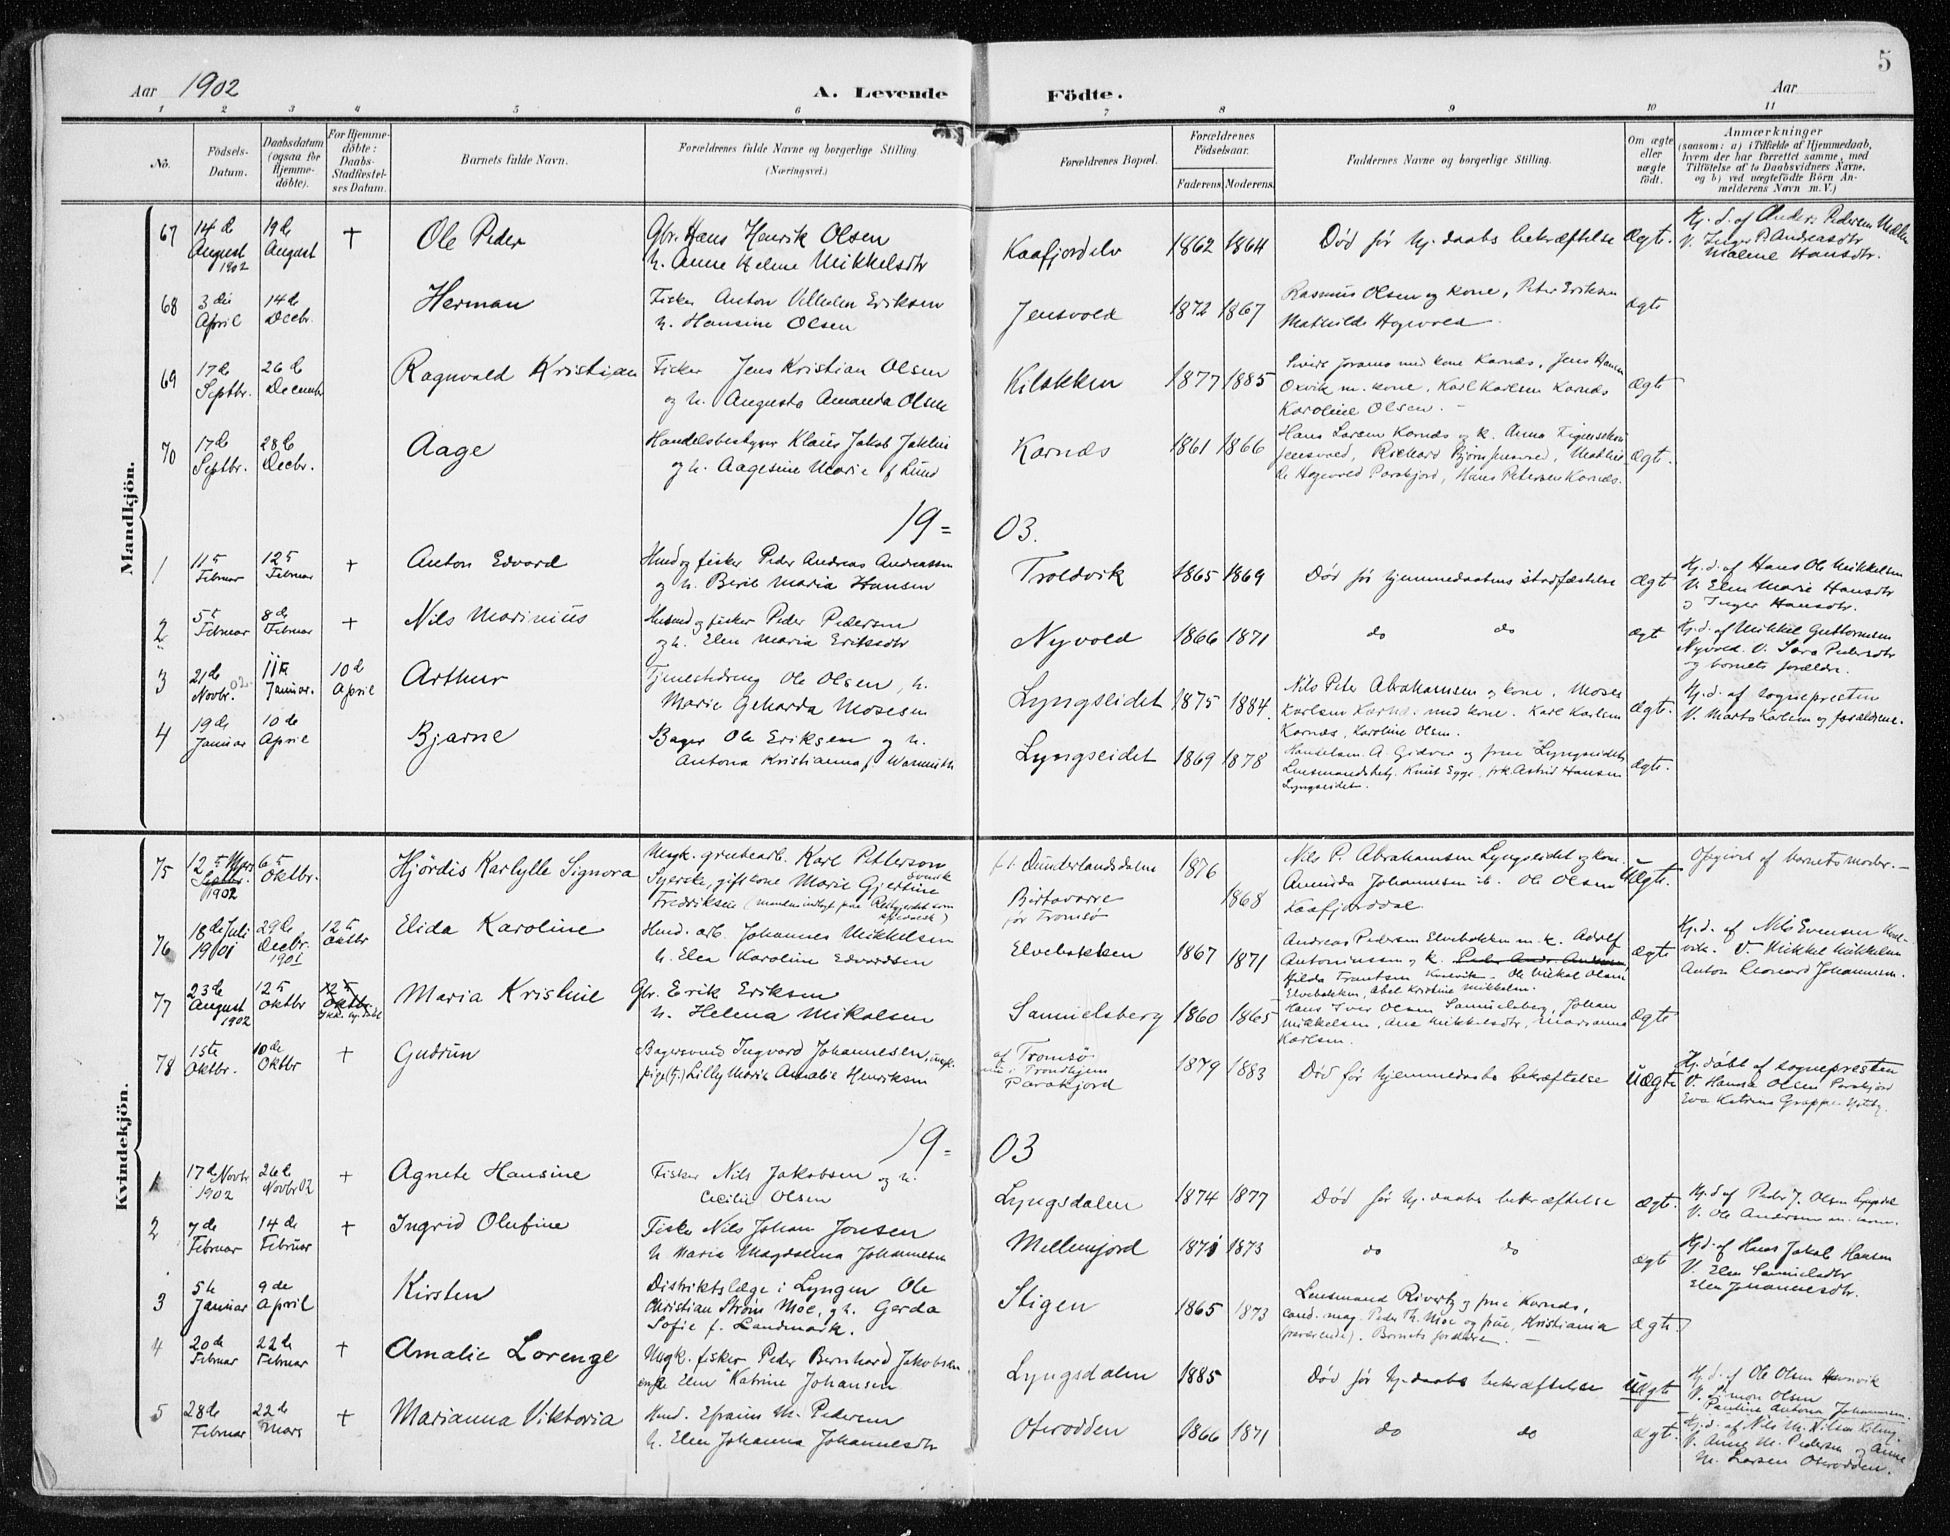 5
Aar 1902 A. Levende Födte. Aar
1 2 3 4 5 6 7 8 9 10 11
Nô. Födsels-Datum. Daabsdatum (ogsaa for Hjemme-döbte). For Hjemme-döbte: Daabs-Stadfæstel-ses Datum. Barnets fulde Navn. Forældrenes fulde Navne og borgerlige Stilling. (Næringsvei.) Forældrenes Bopæl. Forældrenes Födselsaar. Faderens. Moderens. Faddernes Navne og borgerlige Stilling. Om ægte eller uægte födt. Anmærkninger (saasom: a) i Tilfælde af Hjemmedaab, hvem der har forrettet samme, med Tilföielse af to Daabsvidners Navne, og b) ved uægtefödte Börn An-melderens Navn m. V.)
Mandkjön.
67 14de August 1902 19de August + Ole Peder Gbr. Hans Henrik Olsen h. Anne Helene Mikkelsdtr Kaafjordelv 1862 1864 Død før hj.daabs bekræftelse Ægte. Hj.d. af Anders Pedersen V. Inger P. Andreasdtr Malene Hansdtr.
68 3die April 14de Decbr. Herman Fisker Anton Vilhelm Eriksen h. Hansine Olsen Jensvold 1872 1867 Rasmus Olsen og kone, Peter Eriksen Mathilde Hogvold. ægte
69 17de Septbr. 26de Decembr Ragnvald Kristian Fisker Jens Kristian Olsen og h. Augusta Amanda Olsen Kilbakken 1877 1885 med kone Karnæs, Jens Hansen Oxvik m. kone, Karl Karlsen Karnæs Karoline Olsen. ægte
70 17de Septbr. 28de Decbr. Aage Handelsbestyrer Klaus Jakob og h. Aagesine Marie f. Lund Karnæs 1861 1866 Hans Larsen Karnæs og k. Anna Jensvold, Richard Hogvold Parakjord, Hans Petersen Karnæs. ægte.
19= 03.
1 11te Februar 12te Februar + Anton Edvard Husm og fisker Peder Andreas Andreassen og h. Berit Maria Hansen Troldvik 1865 1869 Død før hjemmedaabens stadfæstelse ægte Hj.d. af Hans Ole Mikkelsen V. Elen Marie Hansdtr og Inger Hansdtr.
2 5te Februar 8de Februar + Nils Marinius Husmd og fisker Peder Pedersen og h. Elen Maria Eriksdtr Nyvold 1866 1871 do do ægt Hj.d. af Mikkel Guttormsen Nyvold. V. Sara Pedersdtr og barnets forældre.
3 21de Novbr. 02 11te Januar. 10de April Arthur Tjenestedreng Ole Olsen, h. Marie Geharda Mosesen Lyngseidet 1875 1884. Nils Peter Abrahamsen og kone. Moses Karlsen Karnæs med kone. Karl Karlsen Karnæs, Karoline Olsen. ægte. Hj.d. af sognepresten V. Marta Karlsen og forældrene.
4 19de Januar 10de April Bjarne Bager Ole Eriksen og h. Antona Kristianna f. Lyngseidet 1869 1878 Handelsm. A. Gidver og frue Lyngseidet, Lensmandsbetj. Knut Egge, frk Astrid Hansen Lyngseidet. ægte.
Kvindekjön.
75 12te Mars Septbr. 1902 6te Oktbr. Hjördis Karhylle Signora Ungk. grubearb. Karl Petterson svensk Syerske, gift kone Marie Gjertine Fredriksen (manden indlagt paa Reitgjerdet som spedalsk) f.t. Dunderlandsdalen Birtavarre før Tromsø 1876 1868 Nils P. Abrahamsen Lyngseidet og kone. Amanda Johannesen ib. Ole Olsen Kaafjorddal. Uægte. Opgivet af barnets moder.
76 18de Juli 1901 29de Decbr. 1901 12te Oktbr Elida Karoline Husm. arb. Johannes Mikkelsen h. Elea Karoline Edvardsen Elvebakken 1867 1871 Andreas Pedersen Elvebakken m. k. Adolf Antoniussen og k. Hilda Frantsen Ole Mikal Olsen Elvebakken, Abel Kristine Mikkelsen. ægte Hj.d. af Nils Evensen V. Mikkel Mikkelsen Anton Leonard Johannesen.
77 23de August 1902 12te Oktbr 12te Oktbr. Ikke hj.døbt Maria Kristine Gbr. Erik Eriksen h. Helena Mikalsen Samuelsberg 1860 1865 Hans Iver Olsen Samuelsberg, Johan Mikkelsen, Ana Mikkelsdtr, Marianna Karlsen. ægte
78 1ste Oktbr. 10de Oktbr + Gudrun Bagersvend Ingvard Johannesen, ungk. pige (tj.) Lilly Marie Amalie Henriksen af Tromsø nu i Trondhjem Parakjord 1879 1883 Død før hjemmedaabs bekræftelse uægte Hj.døbt af sognepresten V. Hanna Olsen Parakjord Eva Katrine Grappe
19= 03
1 17de Novbr 1902 26de Novbr 02 + Agnete Hansine Fisker Nils Jakobsen og h. Cecilie Olsen Lyngsdalen 1874 1877 Død før hj.daabs bekræftelse ægte. Hj.d af Peder J. Olsen Lyngsdal V. Ole Andersen m. kone.
2 7de Februar 14de Februar + Ingrid Olufine Fisker Nils Johan Jonsen h Maria Magdalena Johannesen Mellemfjord 1871 1873 do do ægte Hj.d. af Hans Jakob Hansen V. Elen Samuelsdtr Elen Johannesdtr.
3 5te Januar 9de April Kirsten Distriktslæge i Lyngen Ole Christian Strøm Moe, og h. Gerda Sofie f. Landmark. Stigen 1865 1873 Lensmand Rivertz og frue Karnæs, cand. mag. Peder Th. Moe og frue, Kristiania (fraværende). Barnets forældre. ægte.
4 20de Februar 22de Februar + Amalie Lorenze Ungk. fisker Peder Bernhard Jakobsen Elen Katrine Johansen Lyngsdalen 1885 Død før hj.daabs bekræftelse Uægte Hj.d. af Ole Olsen V. Simon Olsen Pauline Antona Johannesen.
5 28de Februar 22de Mars + Marianna Viktoria Husm. Efraim M. Pedersen h. Elen Johanna Johannesdtr Oterodden 1866 1871 do do ægte. Hj.d. af Nils M. Nilsen V. Anne M. Pedersen og Anne M. Larsen Oterodden.